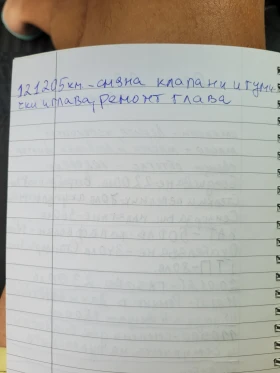 121205км - смяна клапани и гуми
чки и глава, ремонт глава